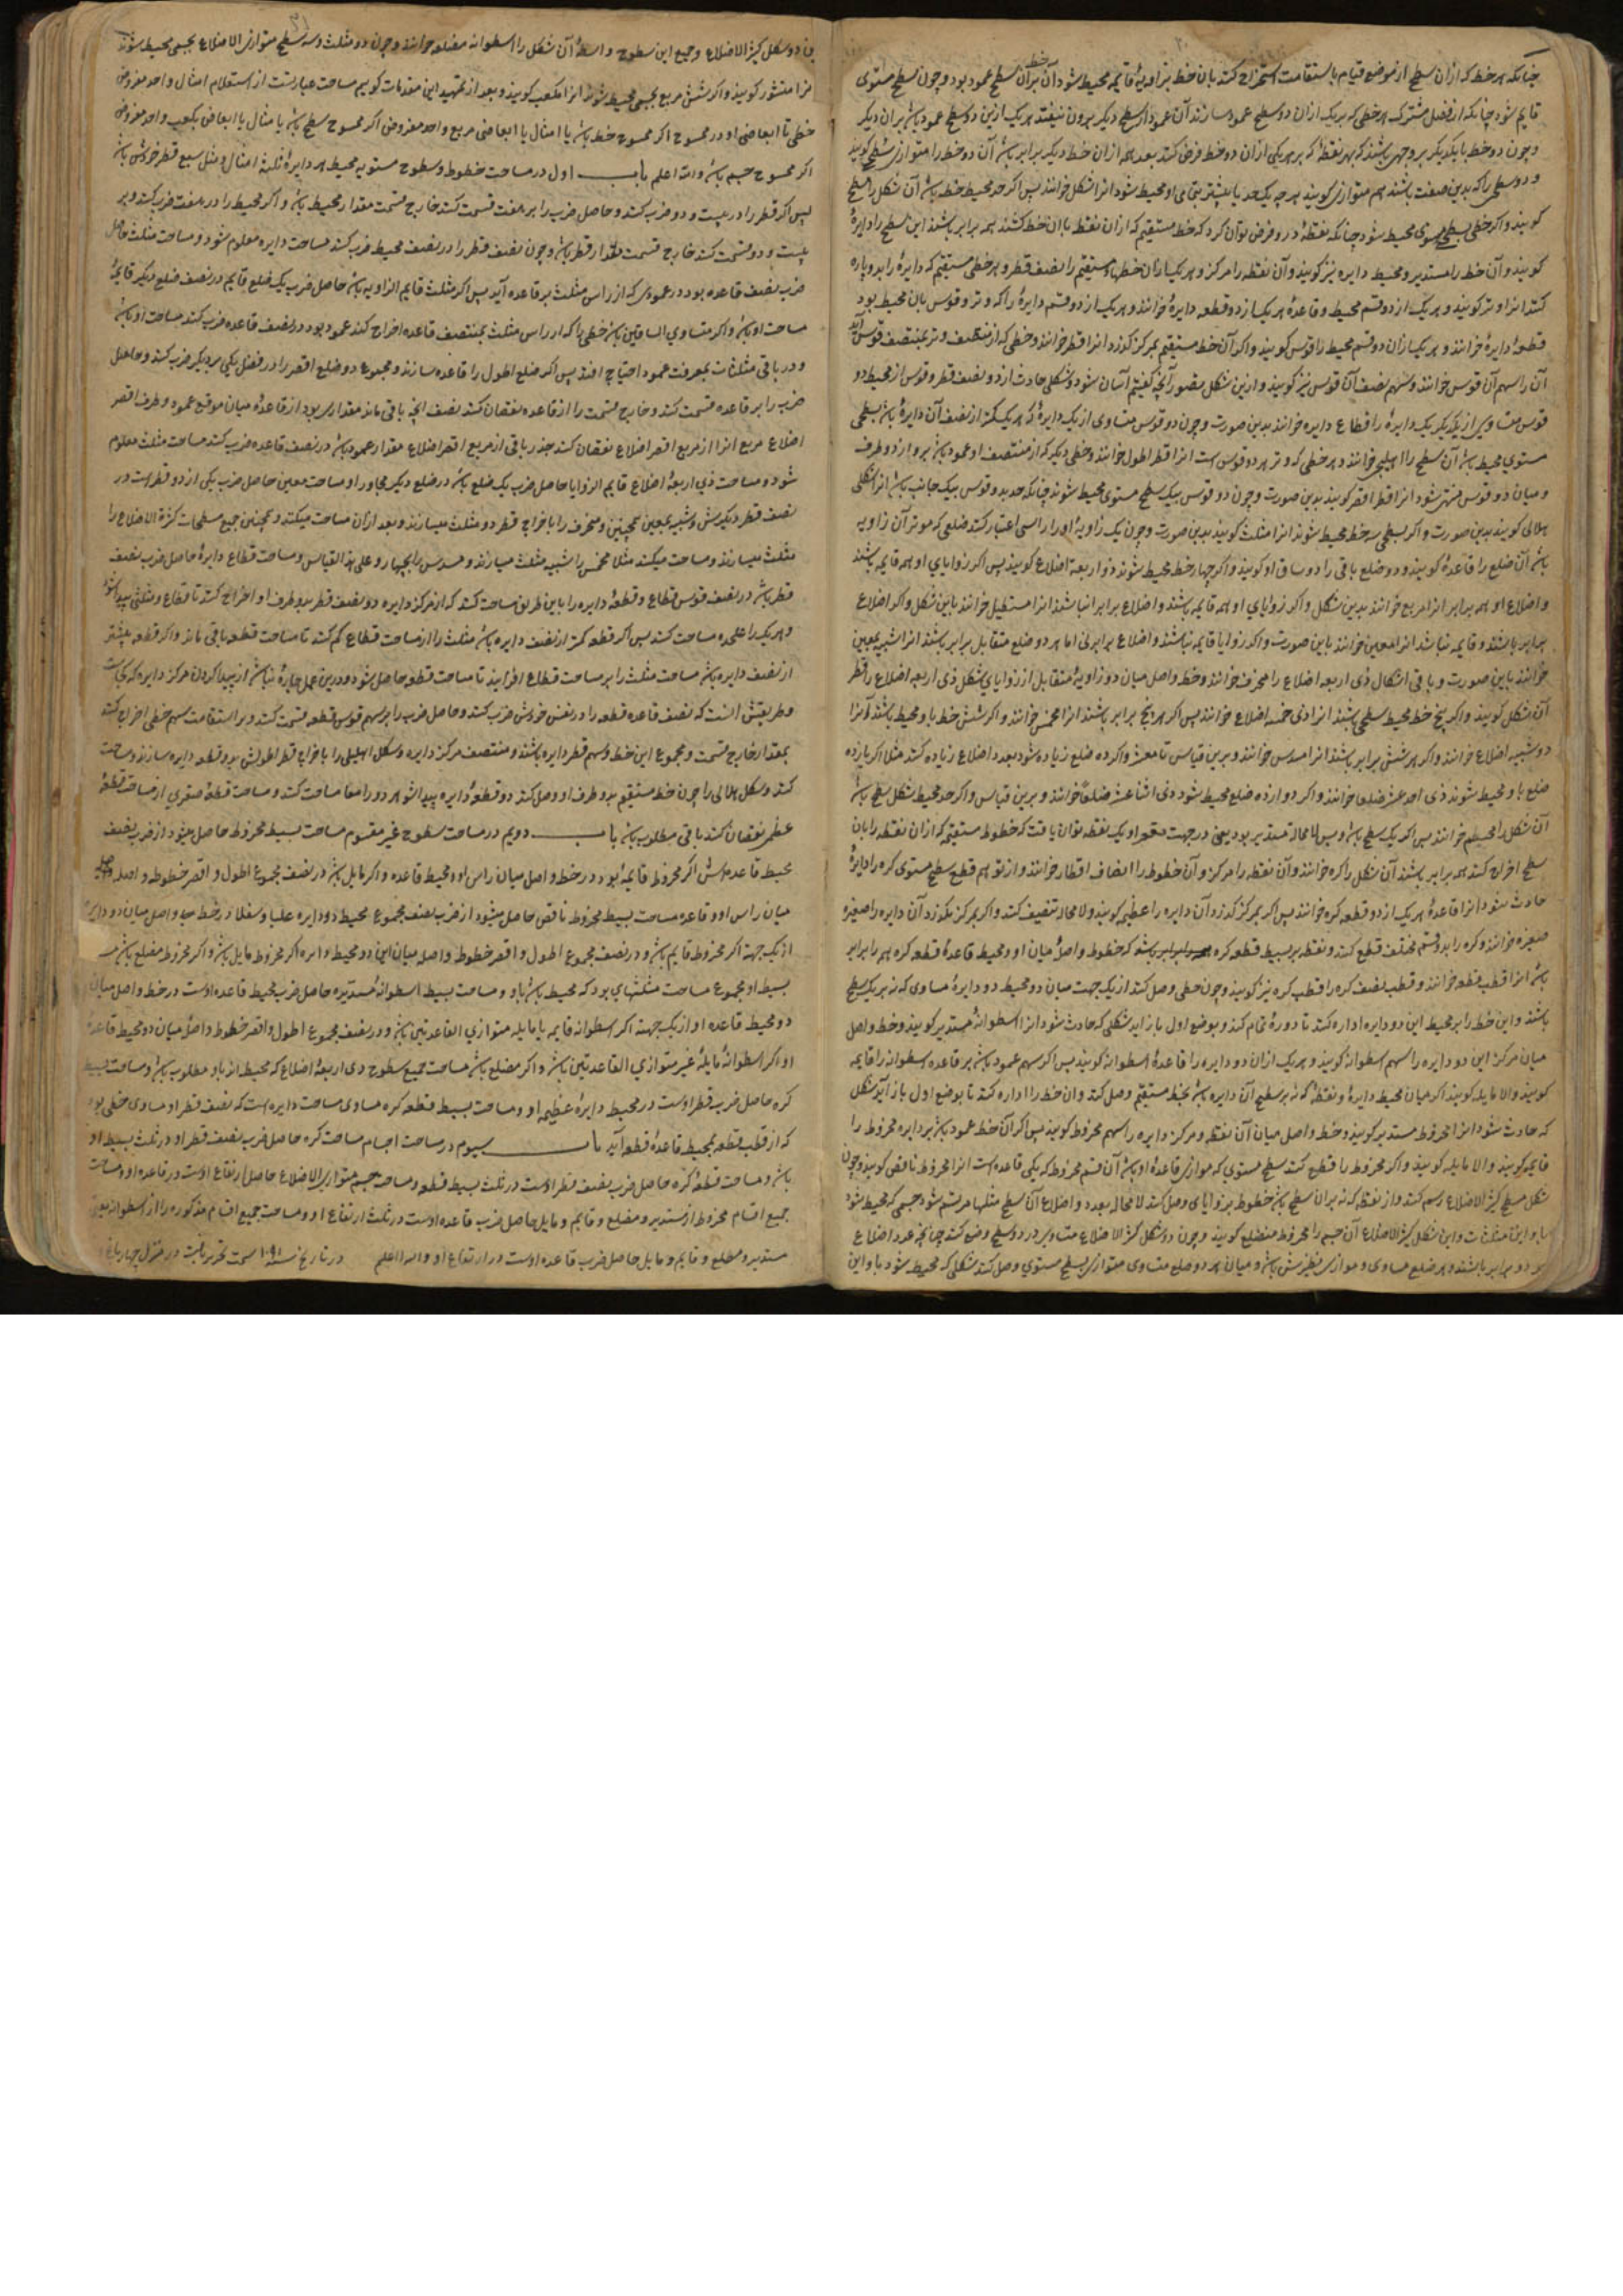 چنانکه هر خط که ازان سطح از موضع قیام باستقامت استخراج کنند بان خط بزاویهٔ قایمه محیط شود آن خط بران سطح عمود بود و چون سطح مستوی
قایم شود چنانکه از فصل مشترک هر خطی که بریک ازان دو سطح عمود سازند آن عمود از سطح دیگر بیرون نیفتد هریک ازین دو سطح عمود باشد بران دیگر
و چون دو خط با یکدیگر بر وجهی باشند که بهر نقطهٔ که بر هر یکی ازان دو خط فرض کنند بعد همه ازان خط دیگر برابر باشد آن دو خط را متوازی کویند
و دو سطحی را که بدین صفت باشند هم متوازی کویند هر چه یک حد یا بیشتر بتمامی او محیط شود انرا شکل خوانند پس اکر حد محیط خط باشد آن شکل را سطح
کویند و اکر خطی بسطحی مستوی محیط شود چنانکه نقطهٔ در و فرض توان کرد که خط مستقیم که ازان نقطه باان خط کشند همه برابر باشند این سطح را دایرهٔ
کویند و آن خط را مستدیر و محیط دایره نیز کویند و آن نقطه را مرکز و هریک ازان خطهای مستقیم را نصف قطر و هر خطی مستقیم که دایرهٔ را بدو پاره
کند انرا وتر کویند و هریک از دو قسم محیط و قاعدهٔ هریک از دو قطعه دایرهٔ خوانند و هریک از دو قسم دایرهٔ را که وتر و قوس بان محیط بود
قطعهٔ دایرهٔ خوانند و هریک ازان دو قسم محیط را قوس کویند و اکر آن خط مستقیم بمرکز کذرد انرا قطر خوانند و خطی که از منتصف وتر بمنتصف قوس آید
آن را سهم آن قوس خوانند و سهم نصف آن قوس نیز کویند و ازین شکل بتصور آنچه کفتیم آسان شود و شکلی حادث از دو نصف قطر و قوس از محیط دو
قوس متساوی از یکدیکر یک دایرهٔ را قطاع دایره خوانند بدین صورت و چون دو قوس متساوی از یک دایرهٔ که هر یک کمتر از نصف آن دایرهٔ باشد بسطحی
مستوی محیط باشد آن سطح را اهلیلجی خوانند و هر خطی که وتر هر دو قوس است انرا قطر اطول خوانند و خطی دیکر که از منتصف او عمود باشد برو از دو طرف
و میان دو قوس منتهی شود انرا قطر اقصر کویند بدین صورت و چون دو قوس بیک سطح مستوی محیط شوند چنانکه حدبه دو قوس بیک جانب باشد انرا شکل
هلالی کویند بدین صورت و اکر بسطحی سه خط محیط شوند انرا مثلث کویند بدین صورت و چون یک زاویه او را راسی اعتبار کنند ضلعی که موتر آن زاویه
باشد آن ضلع را قاعدهٔ کویند و دو ضلع باقی را دو ساق او کویند و اکر چهار خط محیط شوند ذو اربعة اضلاع کویند پس اکر زوایای او همه قایمه باشند
و اضلاع او هم برابر انرا مربع خوانند بدین شکل و اکر زوایای او همه قایمه باشند و اضلاع برابر نباشند انرا مستطیل خوانند باین شکل و اکر اضلاع
برابر باشند و قایمه نباشد انرا معین خوانند باین صورت و اکر زوایا قایمه نباشند و اضلاع برابر نی اما هر دو ضلع متقابل برابر باشند انرا شبیه بمعین
خوانند باین صورت و باقی اشکال ذی اربعه اضلاع را منحرف خوانند و خط واصل میان دو زاویهٔ متقابل از زوایای شکل ذی اربعه اضلاع را قطر
آن شکل کویند و اکر پنج خط محیط سطحی باشند انرا ذی خمسه اضلاع خوانند پس اکر هر پنج برابر باشند انرا مخمس خوانند و اکر شش خط باو محیط باشند انرا
ذو ستة اضلاع خوانند و اکر هر شش برابر باشند انرا مسدس خوانند و برین قیاس تا معشر و اکر ده ضلع زیاده شود بعدد اضلاع زیاده کنند مثلا اکر یازده
ضلع باو محیط شوند ذی احد عشر ضلعا خوانند و اکر دوازده ضلع محیط شود ذی اثنا عشر ضلعا خوانند و برین قیاس و اکر حد محیط شکل سطح باشد
آن شکل را مجسم خوانند پس اکر یک سطح باشد و بس لا محالة مستدیر بود یعنی در جهت مقعر او یک نقطه توان یافت که خطوط مستقیم که ازان نقطه را بان
سطح اخراج کنند همه برابر باشند آن شکل را کره خوانند و آن نقطه را مرکز و آن خطوط را انصاف اقطار خوانند و از توهم قطع سطح مستوی کره را دایرهٔ
حادث شود انرا قاعدهٔ هریک از دو قطعه کره خوانند پس اکر بمرکز کذرد آن دایره را عظیمه کویند و لا محاله تنصیف کند و اکر بمرکز نکذرد آن دایره را صغیره
صغیره خوانند و کره را بدو قسم مختلف قطع کند و نقطه بر بسیط قطعه کره که خطوط واصلهٔ میان او و محیط قاعدهٔ قطعه کره همه برابر
باشد انرا قطب قطعه خوانند و قطب نصف کره را قطب کره نیز کویند و چون خطی وصل کنند از یک جهت میان دو محیط دو دایرهٔ مساوی که نه بر یک سطح
باشند و این خط را بر محیط این دو دایره اداره کنند تا دورهٔ تمام کند و بوضع اول باز اید شکلی که حادث شود انرا اسطوانهٔ مستدیر کویند و خط واصل
میان مرکز این دو دایره را سهم اسطوانه کویند و هریک ازان دو دایره را قاعدهٔ اسطوانه کویند پس اکر سهم عمود باشد بر قاعده اسطوانه را قایمه
کویند والا مایله کویند اکر میان محیط دایرهٔ و نقطهٔ که نه بر سطح آن دایره باشد بخط مستقیم وصل کنند و ان خط را اداره کنند تا بوضع اول باز آید شکل
که حادث شود انرا مخروط مستدیر کویند و خط واصل میان آن نقطه و مرکز دایره را سهم مخروط کویند پس اکر آن خط عمود باشد بر دایره مخروط را
قایم کویند والا مایله کویند و اکر مخروط را قطع کند سطح مستوی که موازی قاعدهٔ او باشد آن قسم مخروط که یکی قاعده است انرا مخروط ناقص کویند و چون
شکل مسطح کثیر الاضلاع رسم کنند و از نقطه که نه بران سطح باشد خطوط بزوایای وصل کنند لا محاله بعدد و اضلاع آن سطح مثلثها مرتسم شود جسمی که محیط شود
باو این مثلثات و این شکل کثیر الاضلاع آن جسم را مخروط مضلع کویند و چون دو شکل کثیر الاضلاع متساوی در دو سطح وضع کنند چنانچه عدد اضلاع
هر دو برابر باشند و هر ضلع مساوی و موازی نظیرش باشد و میان هر دو ضلع متساوی متوازی بسطح مستوی وصل کنند شکلی که محیط شود باو این
این دو شکل کثیر الاضلاع و جمیع این سطوح واسطهٔ آن شکل را اسطوانه مضلعه خوانند و چون دو مثلث و سه سطح متوازی الاضلاع بجسمی محیط شوند
انرا منشور کویند و اکر شش مربع بجسمی محیط شوند انرا مکعب کویند و بعد از تمهید این مقدمات کوییم مساحت عبارتست از استعلام امثال واحد مفروض
خطی تا ابعاضی او در ممسوح اکر ممسوح خط باشد یا امثال یا ابعاضی مربع واحد مفروض اکر ممسوح سطح باشد یا امثال یا ابعاض مکعب واحد مفروض
اکر ممسوح جسم باشد والله اعلم باب اول در مساحت خطوط و سطوح مستویه محیط هر دایرهٔ ثلثهٔ امثال و مثل سبع قطر خودش باشد
پس اکر قطر را در بیست و دو ضرب کنند و حاصل ضرب را بر هفت قسمت کنند خارج قسمت مقدار محیط باشد و اکر محیط را در هفت ضرب کنند و بر
بیست و دو قسمت کنند خارج قسمت مقدار قطر باشد و چون نصف قطر را در نصف محیط ضرب کنند مساحت دایره معلوم شود و مساحت مثلث حاصل
ضرب نصف قاعده بود در عمودی که از راس مثلث بر قاعده آید پس اکر مثلث قایم الزاویه باشد حاصل ضرب یک ضلع قایم در نصف ضلع دیکر قایمهٔ
مساحت او باشد و اکر متساوی الساقین باشد خطی را که از راس مثلث بمنتصف قاعده اخراج کنند عمود بود در نصف قاعده ضرب کنند مساحت او باشد
و در باقی مثلثات بمعرفت عمود احتیاج افتد پس اکر ضلع اطول را قاعده سازند و مجموع دو ضلع اقصر را در فضل یکی بر دیکر ضرب کنند و حاصل
ضرب را بر قاعده قسمت کنند و خارج قسمت را از قاعده نقصان کنند نصف انچه باقی ماند مقداری بود از قاعدهٔ میان موقع عمود و طرف اقصر
اضلاع مربع انرا از مربع اقصر اضلاع نقصان کنند جذر باقی از مربع اقصر اضلاع مقدار عمود باشد در نصف قاعده ضرب کنند مساحت مثلث معلوم
شود و مساحت ذی اربعهٔ اضلاع قایم الزوایا حاصل ضرب یک ضلع باشد در ضلع دیکر مجاور او مساحت معین حاصل ضرب یکی از دو قطر است در
نصف قطر دیکرش و شبیه بمعین همچنین و منحرف را باخراج قطر دو مثلث میسازند و بعد ازان مساحت میکنند و همچنین جمیع مسطحات کثیرة الاضلاع را
مثلث میسازند و مساحت میکنند مثلا مخمس را بسه مثلث میسازند و مسدس را بچهار و علی هذا القیاس و مساحت قطاع دایرهٔ حاصل ضرب نصف
قطر باشد در نصف قوس قطاع و قطعهٔ دایره را باین طریق مساحت کنند که از مرکز دایره دو نصف قطر بدو طرف او اخراج کنند تا قطاع و مثلثی پیدا شود
و هریک را علیحده مساحت کنند پس اکر قطعه کمتر از نصف دایره باشد مثلث را از مساحت قطاع کم کنند تا مساحت قطعه باقی ماند و اکر قطعه بیشتر
از نصف دایره باشد مساحت مثلث را بر مساحت قطاع افزایند تا مساحت قطعه حاصل شود و درین عمل چارهٔ نباشد از پیدا کردن مرکز دایره که کجاست
و طریقش آنست که نصف قاعده قطعه را در نفس خودش ضرب کنند و حاصل ضرب را بر سهم قوس قطعه قسمت کنند و بر استقامت سهم خطی اخراج کنند
بمقدار خارج قسمت و مجموع این خط و سهم قطر دایره باشند و منتصف مرکز دایره و شکل اهلیلجی را باخراج قطر اطولش بدو قطعه دایره سازند و مساحت
کنند و شکل هلالی را چون خط مستقیم بدو طرف او وصل کنند دو قطعهٔ دایره پیدا شود هر دو را معا مساحت کنند و مساحت قطعهٔ صغری از مساحت قطعهٔ
عظمی نقصان کنند باقی مطلوب باشد باب دویم در مساحت سطوح غیر مقسوم مساحت بسیط مخروط حاصل میشود از ضرب نصف
محیط قاعده‌اش اکر مخروط قایمهٔ بود در خط واصل میان راس او و محیط قاعده و اکر مایل باشد در نصف مجموع اطول و اقصر خطوط واصله
میان راس او و قاعده مساحت بسیط مخروط ناقص حاصل میشود از ضرب نصف مجموع محیط دو دایره علیا و سفلا در خط واصل میان دو دایرهٔ
از یک جهة اکر مخروط قایم باشد و در نصف مجموع اطول و اقصر خطوط واصله میان این دو محیط دایره اکر مخروط مایل باشد و اکر مخروط مضلع باشد
بسیط او مجموع مساحت مثلثهای بود که محیط باشد باو و مساحت بسیط اسطوانهٔ مستدیره حاصل ضرب محیط قاعده اوست در خط واصل میان
دو محیط قاعده او از یک جهة اکر اسطوانه قایم یا مایله متوازی القاعدتین باشد و در نصف مجموع اطول و اقصر خطوط واصلهٔ میان دو محیط قاعدهٔ
او اکر اسطوانهٔ مایلهٔ غیر متوازی القاعدتین باشد و اکر مضلع باشد مساحت جمیع سطوح ذی اربعهٔ اضلاع که محیط اند باو مطلوب باشد و مساحت بسیط
کره حاصل ضرب قطر اوست در محیط دایرهٔ عظیمه او و مساحت بسیط قطعه کره مساوی مساحت دایره است که نصف قطر او مساوی خطی بود
که از قطب قطعه بمحیط قاعدهٔ قطعه آید باب سیوم در مساحت اجسام مساحت کره حاصل ضرب نصف قطر او در ثلث بسیط او
باشد و مساحت قطعهٔ کره حاصل ضرب نصف قطر اوست در ثلث بسیط قطعه و مساحت جسم متوازی الاضلاع حاصل ارتفاع اوست در قاعده او و مساحت
جمیع اقسام مخروط از مستدیر و مضلع و قایم و مایل حاصل ضرب قاعده اوست در ثلث ارتفاع او و مساحت جمیع اقسام مذکوره را از اسطوانه یعنی
مستدیر و مضلع و قایم و مایل حاصل ضرب قاعده اوست در ارتفاع او والله اعلم در تاریخ سنه ۱۰۹۱ سمت تحریر یافت در منزل چهارباغ